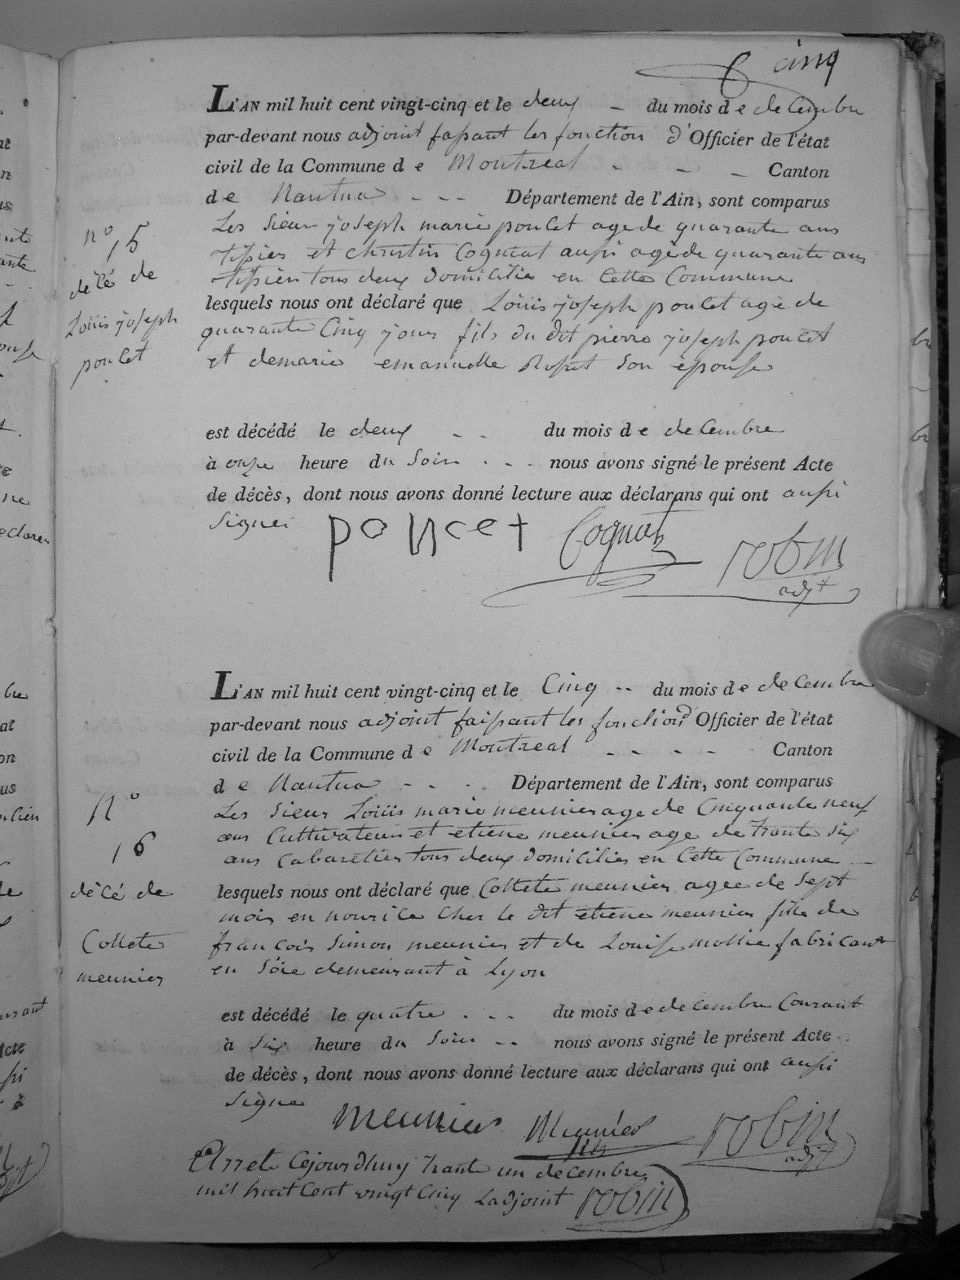 cinq
L'AN mil huit cent vingt-cinq et le deux du mois de decembre
par-devant nous adjoint faisant les fonction d'Officier de l'état
civil de la Commune de Montreal - - - Canton
de Nantua - - - Département de l'Ain, sont comparus
n° 15
décé de
Loüis joseph
poncet
Les Sieur joseph marie poncet age de quarante ans
tissier et Cognat aussi agé de quarante ans
tissier tous deux domicilié en cette Commune
lesquels nous ont déclaré que Loüis joseph poncet agé de
quarante Cinq jours fils du dit pierre joseph poncet
et de marie emanuelle son épouse
est décédé le deux - - du mois de decembre
à onze heure du Soir - - - nous avons signé le présent Acte
de décès, dont nous avons donné lecture aux déclarans qui ont aussi
Signé poncet Cognat robin
adjt
L'AN mil huit cent vingt-cinq et le Cinq - - du mois de decembre
par-devant nous adjoint faissant les fonction d'Officier de l'état
civil de la Commune de Montreal - - - - Canton
de Nantua - - - Département de l'Ain, sont comparus
N°
16
décé de
Collete
meunier
Les Sieur Loüis marie meunier age de Cinquante neuf
ans Cultivateur et etiene meunier age de trante six
ans Cabaretier tous deux domicilies en Cette Commune
lesquels nous ont déclaré que Collete meunier agée de Sept
mois en nourice cher le dit etiene meunier fille de
francois Simon meunier et de Louise mollie fabricant
en Sóie demeurant à Lyon
est décédé le quatre - - - du mois de decembre Courant
à Six heure du Soir - - nous avons signé le présent Acte
de décès, dont nous avons donné lecture aux déclarans qui ont aussi
Signe meunier Meunier robin
adjt
Arrete Cejourdhuy trante un decembre
mil huit Cent vingt Cinq Ladjoint robin